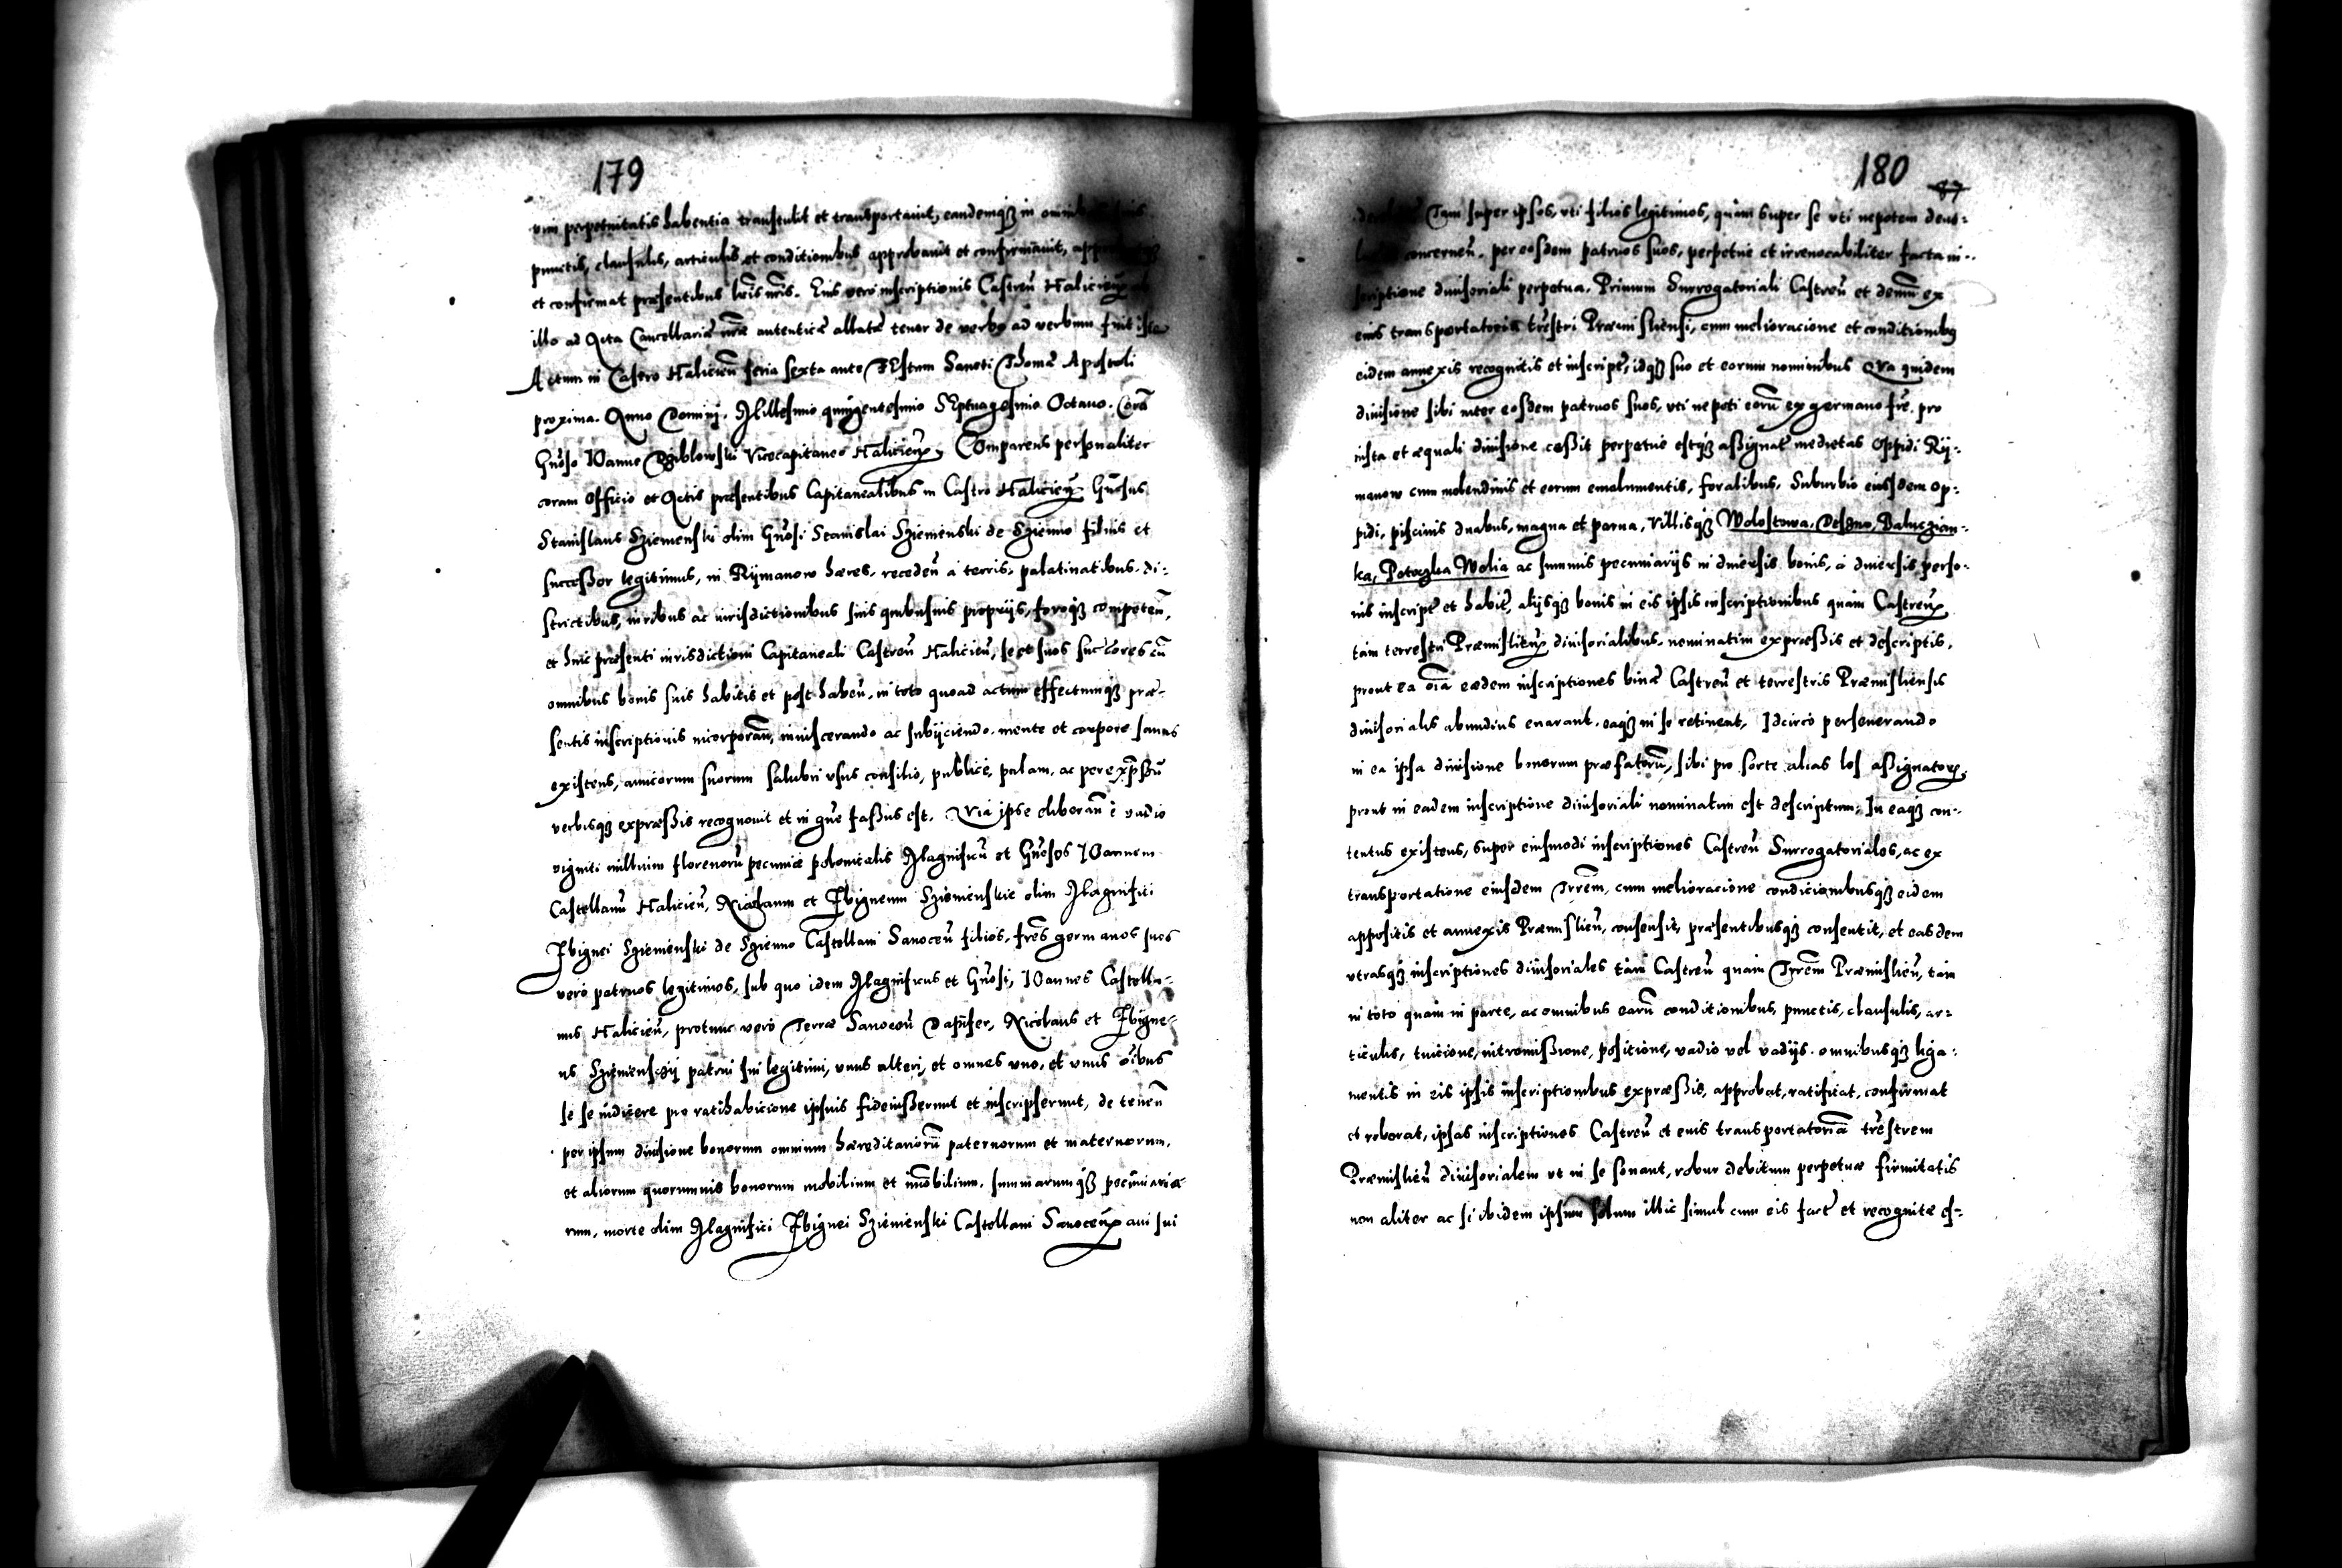 179
vim perpetuitatis habentia transtulit et transportauit, eandemqꝫ in omnibus suis
punctis, clausulis, articulis, et conditionibus approbauit et confirmauit, approbatqꝫ
et confirmat praesentibus lrīs nrīs. Eius vero inscriptionis Castreñ Halicieñ
illo ad Acta Cancellariae nrāe autenticae allatae tenor de verbo ad verbum fuit iste
Actum in Castro Halicieñ feria sexta ante FEstum Sancti Thomae Apostoli
proxima. Anno Domini, Millesimo quingentesimo SEptuagesimo Octauo. Corā
Gñoso IOanne Dziblowski Vicecapitaneo Halicieñ, COmparens personaliter
coram Officio et Actis praesentibus Capitanealibus in Castro Halicieñ Gñosus
Stanislaus Sziemenski olim Gñosi Stanislai Sziemenski de Szienno filius et
successor legitimus, in Rymanow haeres, recedeñ à terris, palatinatibus, di-
strictibus, iuribus ac iurisdictionibus suis quibusuis proprijs, foroqꝫ competeñ,
et huic praesenti iurisdictioni Capitaneali Castreñ Halicieñ, se et suos succores cū
omnibus bonis suis habitis et post habeñ, in toto quoad actum effectumqꝫ prae-
sentis inscriptionis incorporāñ, inuiscerando ac subijciendo, mente et corpore sanus
existens, amicorum suorum salubri vsus consilio, publicè, palam, ac per expssū
verbisqꝫ expraessis recognouit et in gñe fassus est. QVia ipse eliberāñ è vadio
viginti millium florenorū pecuniae polonicalis Magnificū et Gñosos IOannem
Castellanū Halicieñ, Nicolaum et Zbigneum Sziemenskie olim Magnifici
Zbignei Sziemenski de Szienno Castellani Sanoceñ filios, frēs germanos suos
verò patruos legitimos, sub quo idem Magnificus et Gñosi, IOannes Castella-
nus Halicieñ, protunc verò Terrae Sanoceñ Dapifer, Nicolaus et Zbigne-
us Sziemenscij patrui sui legitimi, vnus alteri, et omnes vno, et vnus oībus
sese inducere pro ratihabicione ipsius fideiusserunt et inscripserunt, de teneñ
per ipsum diuisione bonorum omnium haereditariorū paternorum et maternorum,
et aliorum quorumuis bonorum mobilium et imobilium, summarumqꝫ pecuniaria-
rum, morte olim Magnifici Zbignei Sziemienski Castellani Sanoceñ aui sui
180
87
Tam super ipsos, vti filios legitimos, quàm super se vti nepotem deuo-
concerneñ, per eosdem patruos suos, perpetue et irreuocabiliter facta in-
scriptione diuisoriali perpetua, Primum Surrogatoriali Castreñ et demū ex
eius transportatoria trēstri Praemisliensi, cum melioracione et conditionibꝰ
eidem annexis recognitis et inscript, idqꝫ suo et eorum nominibus QVa quidem
diuisione sibi inter eosdem patruos suos, vti nepoti eorū ex germano frē, pro
iusta et aequali diuisione cessit perpetuè estqꝫ assignat medietas Oppidi Ry-
manow cum molendinis et eorum emolumentis, foralibus, Suburbio eiusdem op-
pidi, piscinis duabus, magna et parua, Villisqꝫ Wołostowa, Deszno, Baluczian-
ka, Potoczka Wolia ac summis pecuniarijs in diuersis bonis, à diuersis perso-
nis inscript et habit, alijsqꝫ bonis in eis ipsis inscriptionibus quàm Castreñ
tàm terrestri Praemislieñ diuisorialibus, nominatim expraessis et descriptis,
prout ea oīa eaedem inscriptiones binae Castreñ et terrestris Praemisliensis
diuisorialis abundius enarant, eaqꝫ in se retinent, Idcircò perseuerando
in ea ipsa diuisione bonorum praefatorū, sibi pro sorte alias los assignatorum,
prout in eadem inscriptione diuisoriali nominatim est descriptum, In eaqꝫ con-
tentus existens, super eiusmodi inscriptiones Castreñ Surrogatoriales, ac ex
transportatione eiusdem Trrēm, cum melioracione condicionibusqꝫ eidem
appositis et annexis Praemislieñ, consensit, praesentibusqꝫ consentit, et easdem
vtrasqꝫ inscriptiones diuisoriales tàm Castreñ quàm Trrēm Praemislieñ, tàm
in toto quàm in parte, ac omnibus earū conditionibus, punctis, clausulis, ar-
ticulis, tuicione, intromissione, positione, vadio vel vadijs, omnibusqꝫ liga-
mentis in eis ipsis inscriptionibus expraessis, approbat, ratificat, confirmat
et roborat, ipsas inscriptiones Castreñ et eius transportatoriā trēstrem
Praemislieñ diuisorialem vt in se sonant, robur debitum perpetuae firmitatis
non aliter ac si ibidem ipsum solum illic simul cum eis fact et recognitae es-